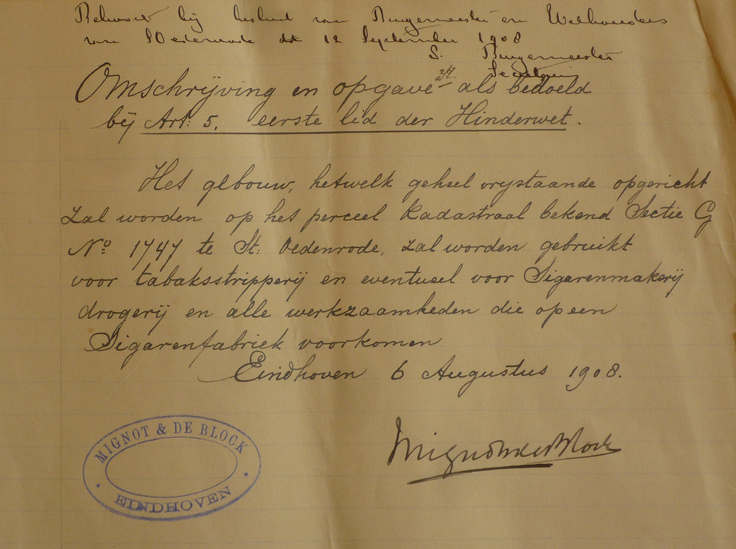 Behoort bij besluit van Burgemeester en Wethouders
van StOedenrode dd 12 September 1908
S. Burgemeester
Secretaris
Omschrijving en opgave als bedoeld
bij Art: 5, eerste lid der Hinderwet.
Het gebouw, hetwelk geheel vrystaande opgericht
zal worden op het perceel Kadastraal bekend Sectie G
No 1747 te St: Oedenrode, zal worden gebruikt
voor tabaksstripperij en eventueel voor Sigarenmakerij
drogerij en alle werkzaamheden die op een
Sigarenfabriek voorkomen
Eindhoven 6 Augustus 1908.
MIGNOT & DE BLOCK
EINDHOVEN
Mignot en de Block